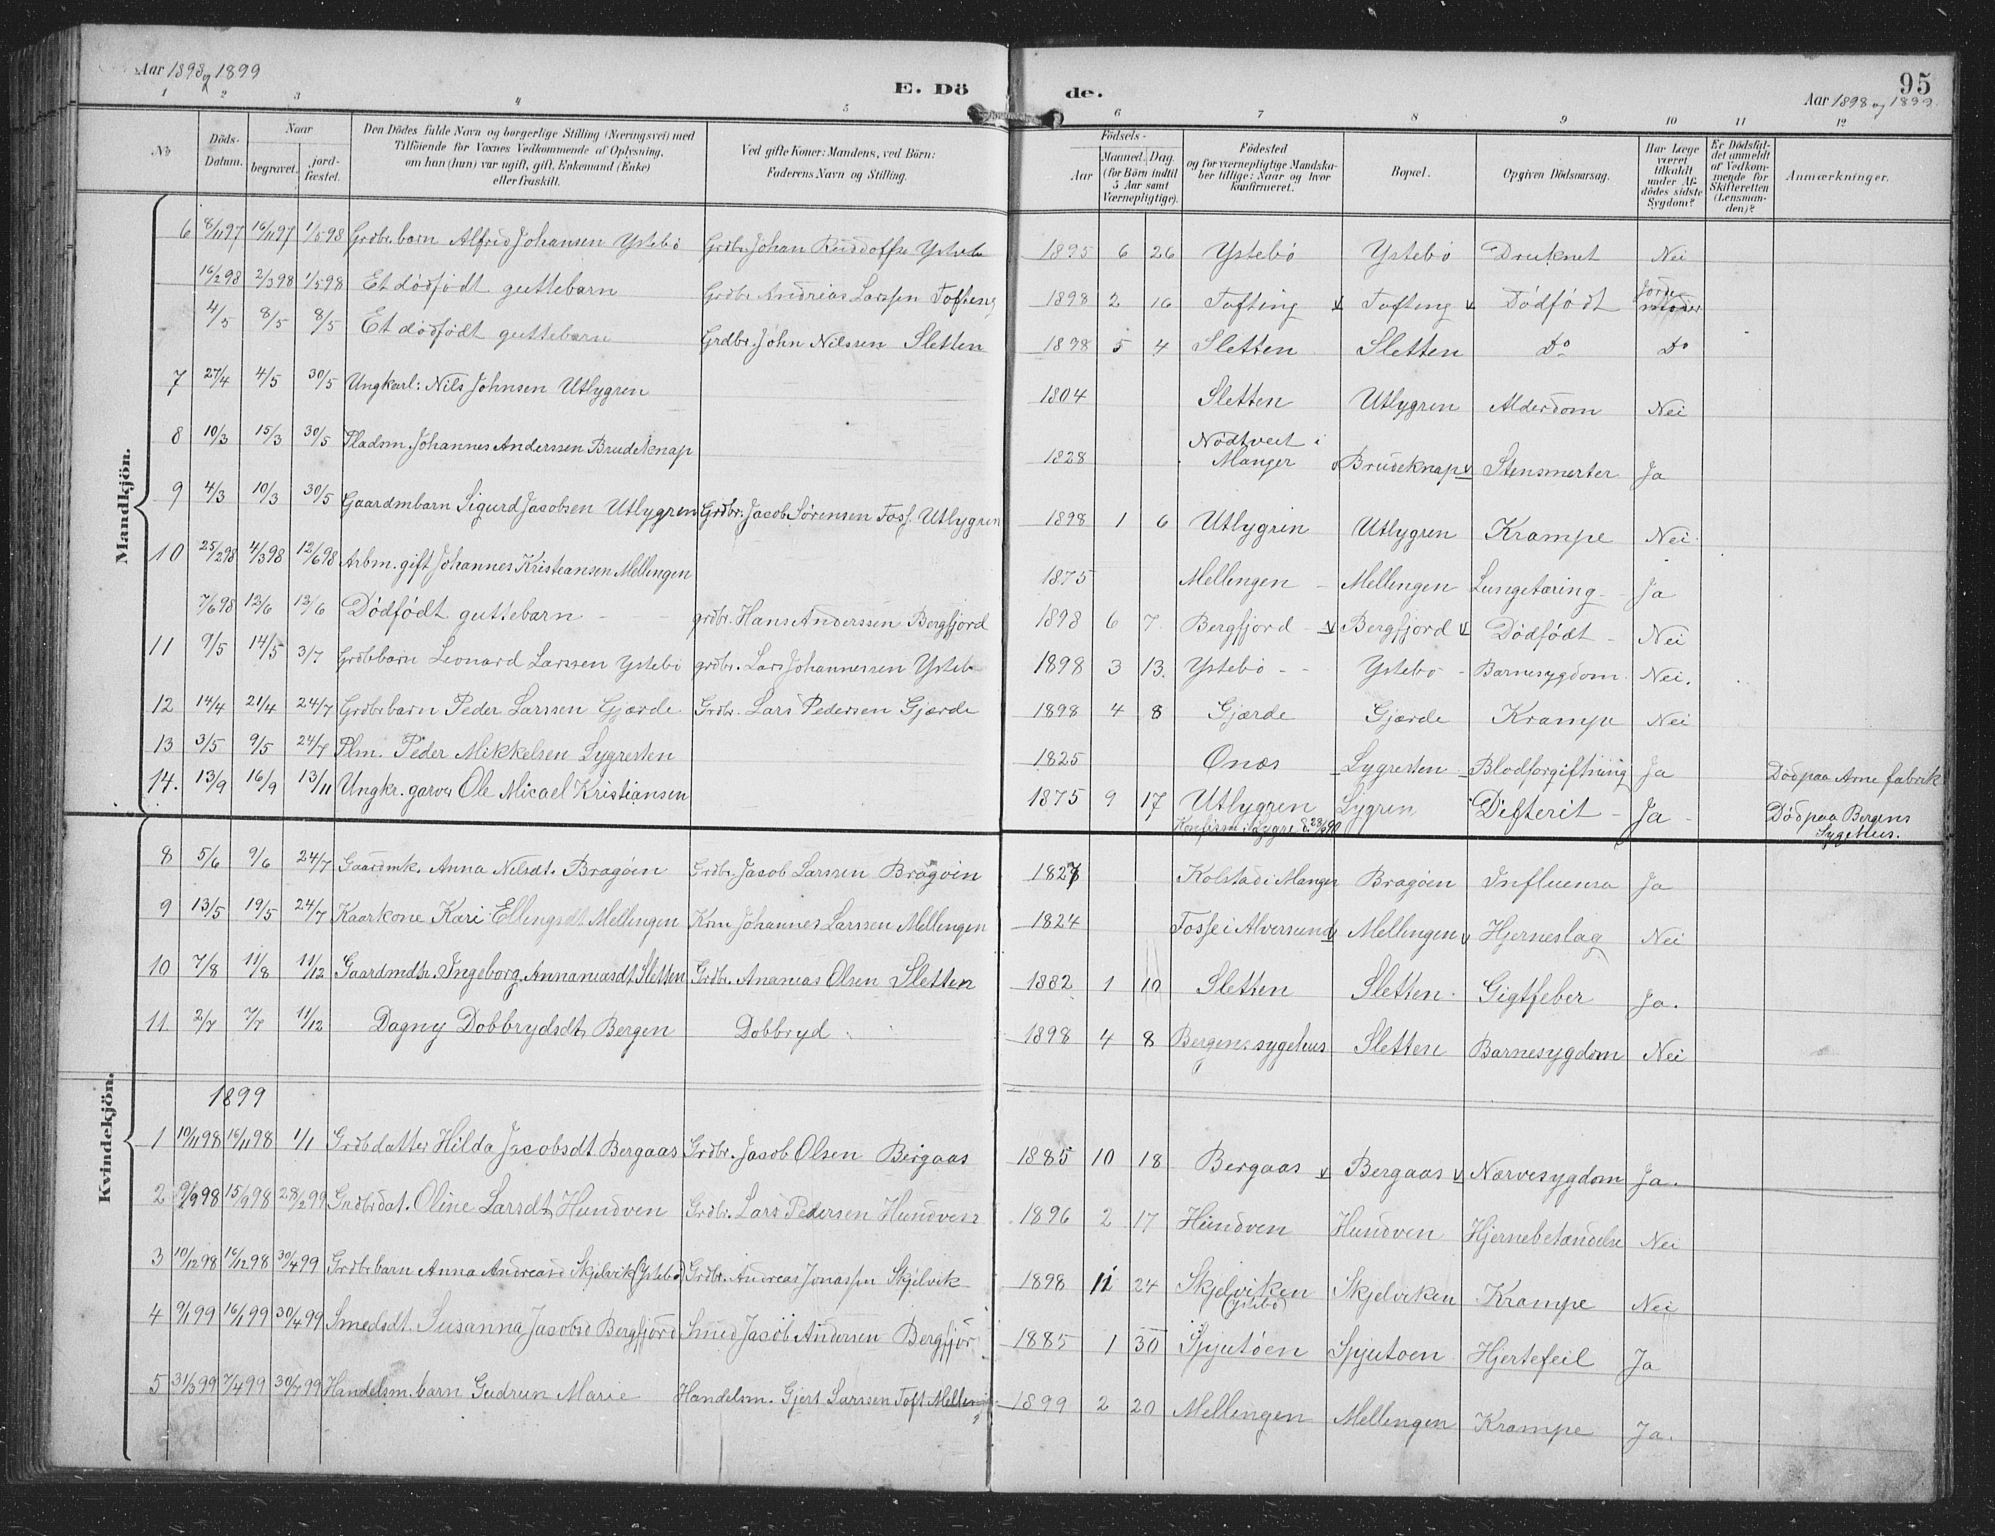 Aar 1898 og 1899
E. Dö
de.
95
Aar 1898 og 1899.
1 2 3 4 5 6 7 8 9 10 11 12
No
Döds-Datum.
Naar
begravet.
jord-fæstet.
Den Dödes fulde Navn og borgerlige Stilling (Næringsvei) med
Tilföiende for Voxnes Vedkommende af Oplysning,
om han (hun) var ugift, gift, Enkemand (Enke)
eller fraskilt.
Ved gifte Koner: Mandens, ved Börn:
Faderens Navn og Stilling.
Födsels-
Aar
Maaned. Dag.
(for Börn indtil
5 Aar samt
Værnepligtige).
Födested
og for værnepligtige Mandska-
ber tillige: Naar og hvor
konfirmeret.
Bopæl.
Opgiven Dödsaarsag.
Har Læge
været
tilkaldt
under Af-
dödes sidste
Sygdom?
Er Dödsfal-
det anmeldt
af Vedkom-
mende for
Skifteretten
(Lensman-
den)?
Anmærkninger.
Mandkjön.
6 8/11 97 16/11 97 1/5 98 Grdbr. barn Alfred Johansen Ystebö Grdbr. Johan Ystebö 1895 6 26 Ystebö Ystebö Druknet Nei
16/2 98 2/3 98 1/5 98 Et dödfödt guttebarn Grdbr. Andreas Larssen Tofting 1898 2 16 Tofting Tofting Dödfödt Jordemoder
4/5 8/5 8/5 Et dödfödt guttebarn Grdbr. John Nilssen Sletten 1898 5 4 Sletten Sletten Do Do
7 27/4 4/5 30/5 Ungkarl: Nils Johnsen Utlygren 1804 Sletten Utlygren Alderdom Nei
8 10/3 15/3 30/5 Pladsm. Johannes Anderssen Brudeknap 1828 Nodtveit i Manger Brudeknap Stensmerter Ja
9 4/3 10/3 30/5 Gaardmbarn Sigurd Jacobsen Utlygren Grdbr. Jacob Sörensen Foss. Utlygren 1898 1 6 Utlygrin Utlygren Krampe Nei
10 25/2 98 4/3 98 12/6 98 Arbm. gift Johannes Kristiansen Mellingen 1875 Mellingen Mellingen Lungetæring Ja
7/6 98 12/6 12/6 Dödfödt guttebarn grdbr. Hans Anderssen Bergfjord 1898 6 7 Bergfjord Bergfjord Dödfödt Nei
11 9/5 14/5 3/7 Grdbrbarn Leonard Larssen Ystebö grdbr. Lars Johannessen Ysteb 1898 3 13. Ystebö Ystebo Barnesygdom Nei.
12 14/4 21/4 24/7 Grdbr barn Peder Larssen Gjærde Grdbr. Lars Pedersen Gjærde 1898 4 8 Gjærde Gjærde Krampe Nei
13 3/5 9/5 24/7 Plm. Peder Mikkelsen Lygresten 1825 Onæs Lygresten Blodforgiftning Ja Död paa Arne fabrik
14. 13/9 16/9 13/11 Ungkr. garver Ole Micael Kristiansen 1875 9 17 Utlygren Lygren Difterit Ja Död paa Bergens
Sygehus.
Kvindekjön.
8 5/6 9/6 24/7 Gaardmk. Anna Nilsdt. Bragöen Grdbr. Jacob Larssen Bragöen 1827 Kolstad i Manger Bragöen Influensa Ja
9 13/5 19/5 24/7 Kaarkone Kari Ellingsdt Mellingen Krm Johannes Larssen Mellingen 1824 Fosse i Alversund Mellingen Hjerneslag Nei
10 7/8 11/8 11/12 Gaardmdtr. Ingeborg Annaniasdt Sletten Grdbr. Ananias Olsen Sletten 1882 1 10 Sletten Sletten Gigtfeber Ja.
11 2/7 7/7 11/12 Dagny Dobbrydsdt, Bergen Dobbryd 1898 4 8 Bergens sygehus Sletten Barnesygdom Nei
1899
1 10/11 98 16/11 98 1/1 Grdbdatter Hilda Jacobsdt Bergaas Grdbr. Jacob Olsen Bergaas 1885 10 18 Bergaas Bergaas Nærvesygdom Ja.
2 9/9 98 15/9 98 28/2 99 Grdbrdat. Oline Larsdt, Hundven Grdbr. Lars Pedersen Hundven 1896 2 17 Hundven Hundven Hjernebetændelse Nei
3 10/12 98 16/12 98 30/4 99 Grdbrbarn Anna Andreasd Skjelvik (Ystebö) Grdbr. Andreas Jonassen Skjelvik 1898 11 24 Skjelviken (Ystebö) Skjelviken Krampe Nei
4 9/1 99 16/1 99 30/4 99 Smedsdt. Susanna Jacobsd Bergfjord Smed Jacob Andersen Bergfjor 1885 1 30 Spjutöen Spjutoen Hjertefeil Ja
5 31/3 99 7/4 99 30/7 99 Handelsm. barn Gudrun Marie Handelsm. Gjert Larssen Toft Mellin 1899 2 20 Mellingen Mellingen Krampe Ja.